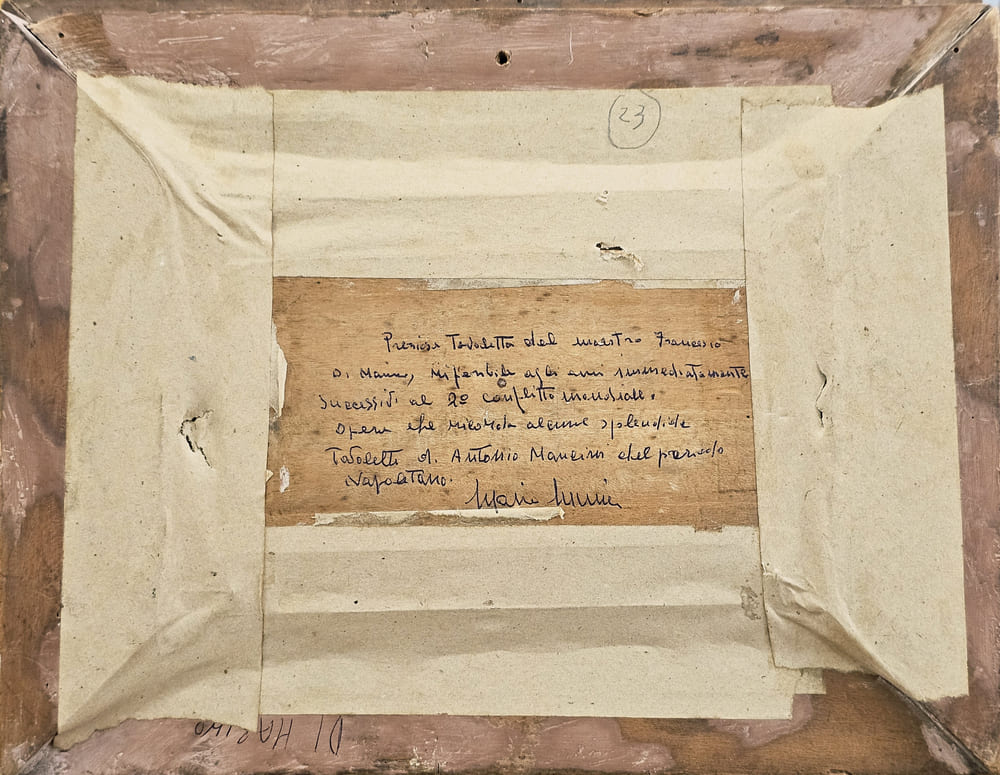 23
Preziosa Tavoletta del maestro Francesco
Di Marino, riferibile agli anni immediatamente
successivi al 2º conflitto mondiale.
Opera che ricorda alcune splendide
Tavolette di Antonio Mancini del periodo
Napoletano.
Mario
DI MARINO